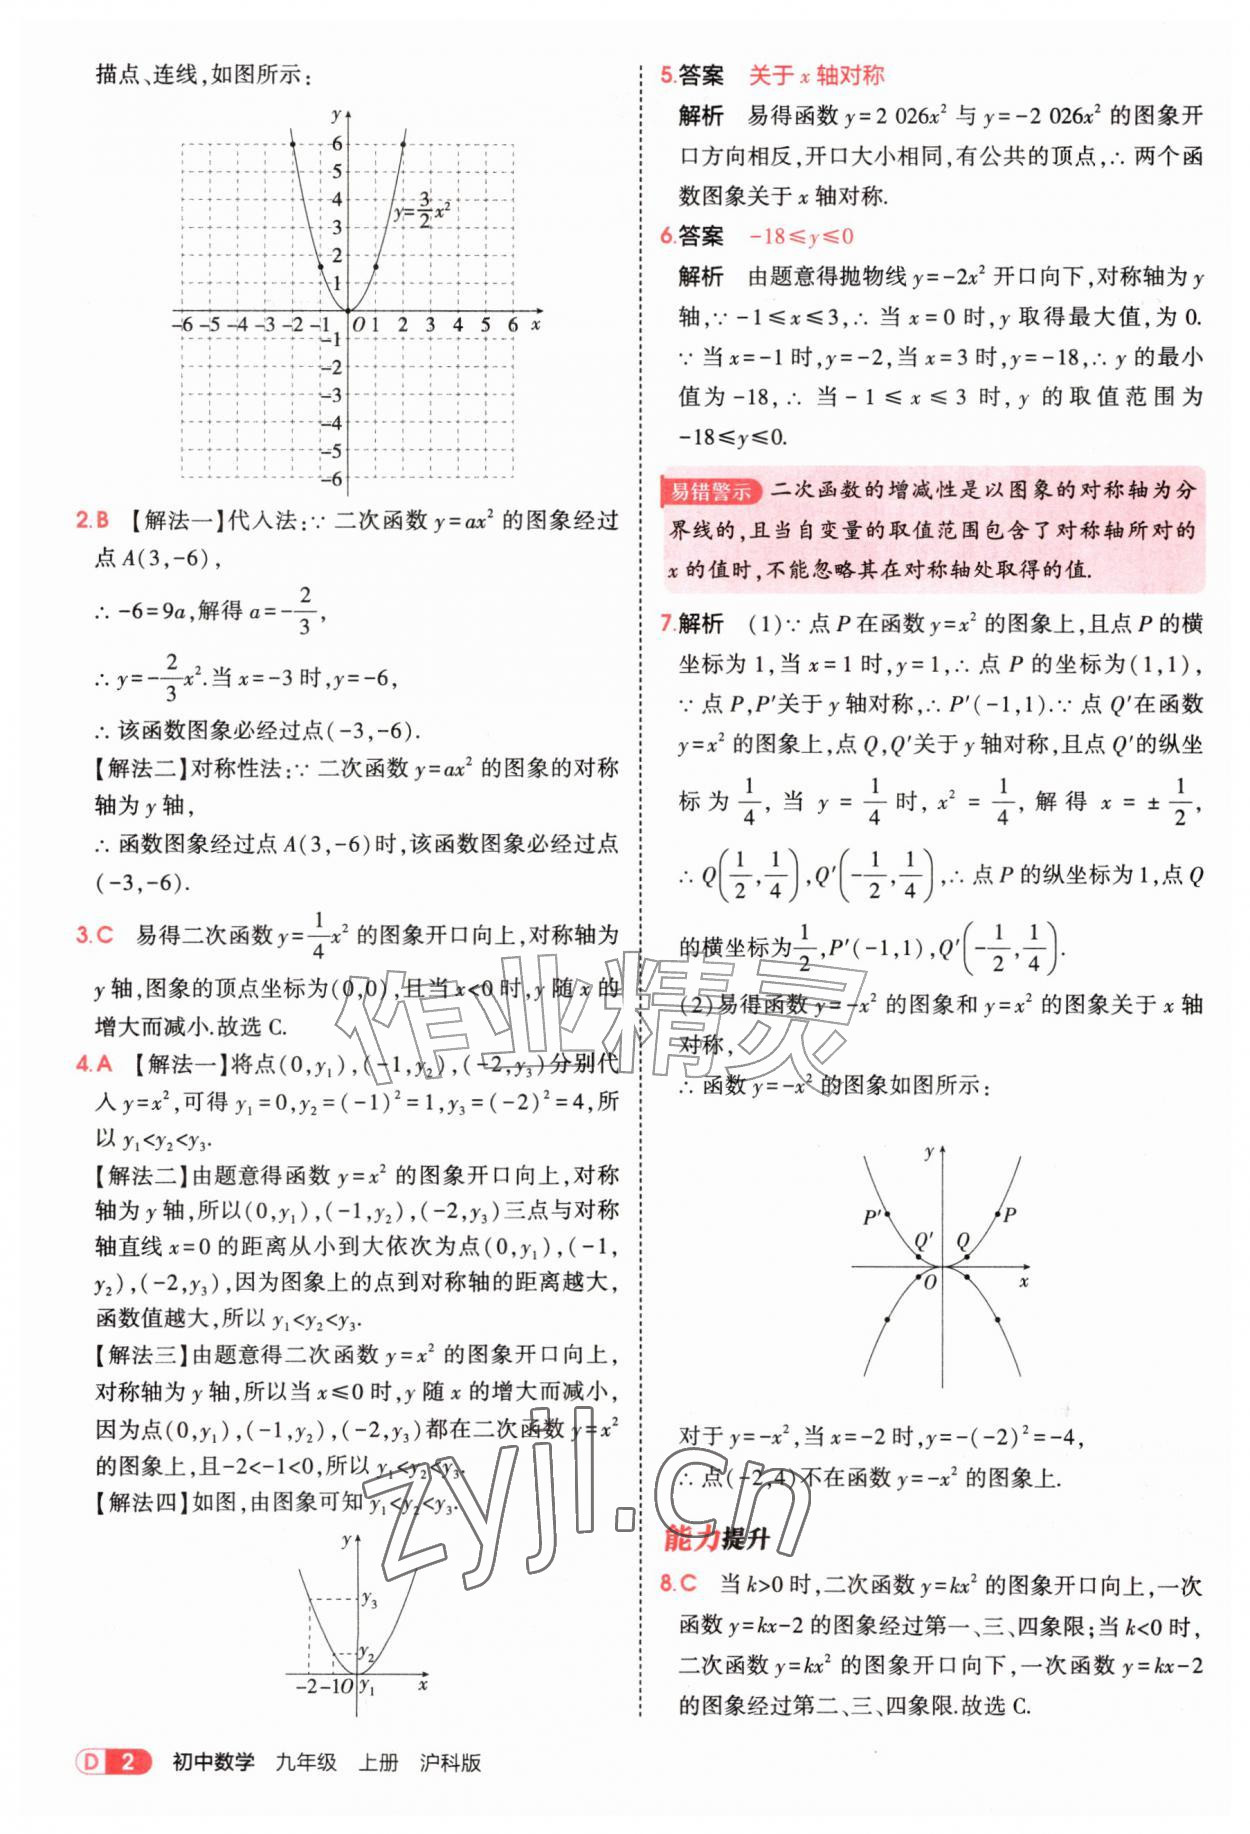 描点、连线,如图所示:
y
6
5
4
3
2
1
y=3/2x²
-6 -5 -4 -3 -2 -1 O 1 2 3 4 5 6 x
-1
-2
-3
-4
-5
-6
2.B 【解法一】代入法:∵二次函数y=ax²的图象经过
点A(3,-6),
∴-6=9a,解得a=-2/3,
∴y=-2/3x².当x=-3时,y=-6,
∴该函数图象必经过点(-3,-6).
【解法二】对称性法:∵二次函数y=ax²的图象的对称
轴为y轴,
∴函数图象经过点A(3,-6)时,该函数图象必经过点
(-3,-6).
3.C 易得二次函数y=1/4x²的图象开口向上,对称轴为
y轴,图象的顶点坐标为(0,0),且当x<0时,y随x的
增大而减小.故选C.
4.A 【解法一】将点(0,y₁),(-1,y₂),(-2,y₃)分别代
入y=x²,可得y₁=0,y₂=(-1)²=1,y₃=(-2)²=4,所
以y₁<y₂<y₃.
【解法二】由题意得函数y=x²的图象开口向上,对称
轴为y轴,所以(0,y₁),(-1,y₂),(-2,y₃)三点与对称
轴直线x=0的距离从小到大依次为点(0,y₁),(-1,
y₂),(-2,y₃),因为图象上的点到对称轴的距离越大,
函数值越大,所以y₁<y₂<y₃.
【解法三】由题意得二次函数y=x²的图象开口向上,
对称轴为y轴,所以当x≤0时,y随x的增大而减小,
因为点(0,y₁),(-1,y₂),(-2,y₃)都在二次函数y=x²
的图象上,且-2<-1<0,所以y₁<y₂<y₃.
【解法四】如图,由图象可知y₁<y₂<y₃.
y
y₃
y₂
-2 -1 O y₁ x
D 2 初中数学 九年级 上册 沪科版
5.答案 关于x轴对称
解析 易得函数y=2 026x²与y=-2 026x²的图象开
口方向相反,开口大小相同,有公共的顶点,∴两个函
数图象关于x轴对称.
6.答案 -18≤y≤0
解析 由题意得抛物线y=-2x²开口向下,对称轴为y
轴,∵-1≤x≤3,∴当x=0时,y取得最大值,为0.
∵当x=-1时,y=-2,当x=3时,y=-18,∴y的最小
值为-18,∴当-1≤x≤3时,y的取值范围为
-18≤y≤0.
易错警示 二次函数的增减性是以图象的对称轴为分
界线的,且当自变量的取值范围包含了对称轴所对的
x的值时,不能忽略其在对称轴处取得的值.
7.解析 (1)∵点P在函数y=x²的图象上,且点P的横
坐标为1,当x=1时,y=1,∴点P的坐标为(1,1),
∵点P,P′关于y轴对称,∴P′(-1,1).∵点Q′在函数
y=x²的图象上,点Q,Q′关于y轴对称,且点Q′的纵坐
标为1/4,当y=1/4时,x²=1/4,解得x=±1/2,
∴Q(1/2,1/4),Q′(-1/2,1/4),∴点P的纵坐标为1,点Q
的横坐标为1/2,P′(-1,1),Q′(-1/2,1/4).
(2)易得函数y=-x²的图象和y=x²的图象关于x轴
对称,
∴函数y=-x²的图象如图所示:
y
P′ P
Q′ Q
O x
对于y=-x²,当x=-2时,y=-(-2)²=-4,
∴点(-2,4)不在函数y=-x²的图象上.
能力提升
8.C 当k>0时,二次函数y=kx²的图象开口向上,一次
函数y=kx-2的图象经过第一、三、四象限;当k<0时,
二次函数y=kx²的图象开口向下,一次函数y=kx-2
的图象经过第二、三、四象限.故选C.
作业精灵
zyjl.cn